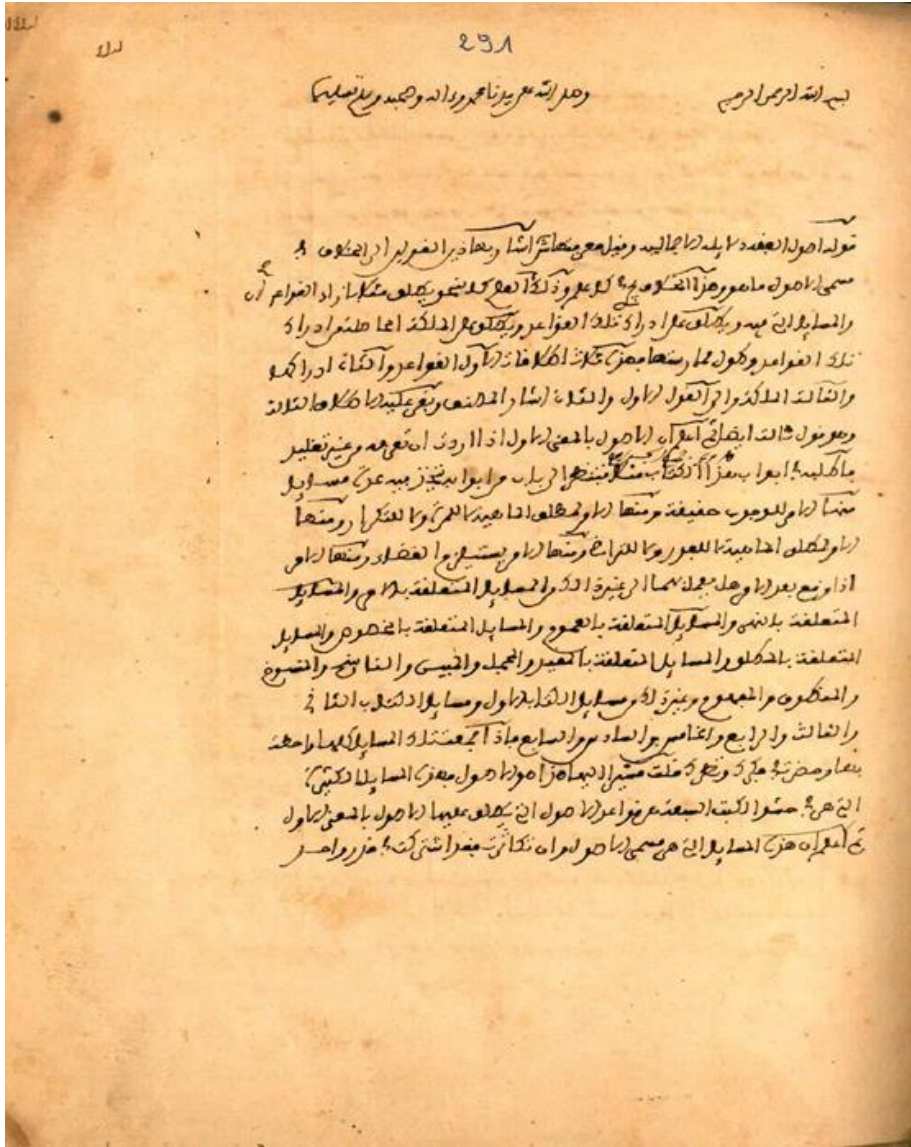 291
بسم الله الرحمن الرحيم وصلى الله على سيدنا محمد وءاله وصحبه وسلم تسليما
قوله اصول الفقه دلايله الاجمالية وقيل معرفتها اشار بهاذين القولين الى الخلاف في
مسمى الاصول ما هو وهذا الخلاف في كل علم وذلك ان العلم كالنحو يطلق مثلا يراد القواعد
والمسايل التي فيه ويطلق على ادراك تلك القواعد ويطلق على الملكة الحاصلة من ادراك
تلك القواعد وطول ممارستها فهذه ثلاث اطلاقات الاول القواعد والثاني ادراكها
والثالث الملكة والى القول الاول والثاني اشار المصنف وبقي عليه الاطلاق الثالث
وهو قول ثالث ايضا ثم اعلم ان الاصول بالمعنى الاول اذا اردت ان تعرفه من غير تقليد
فاطلبه في ابواب هذا الكتاب مثلا فتنظر الى باب من ابوابه فتجد فيه عدة مسايل
منها الامر للوجوب حقيقة ومنها الامر لطلب الماهية لا للمرة ولا للتكرار ومنها
الامر لطلب الماهية لا للفور ولا للتراخي ومنها الامر يستلزم القضاء ومنها الامر
اذا وقع بعد الامر هل يحمل الى غير ذلك من المسايل المتعلقة بالامر والمسايل
المتعلقة بالنهي والمسايل المتعلقة بالعموم والمسايل المتعلقة بالخصوص والمسايل
المتعلقة بالمطلق والمسايل المتعلقة بالمقيد والمجمل والمبين والناسخ والمنسوخ
والمنطوق والمفهوم وغير ذلك من مسايل الكتاب الاول ومسايل الكتاب الثاني
والثالث والرابع والخامس والسادس والسابع فاذا جمعت تلك المسايل كلها واحطت
بها وحضرت في فكرك ونظرك قلت مشيرا اليها هذا هو الاصول فهذه المسايل الكثيرة
التي هي في حشو الكتب السبعة هي قواعد الاصول التي يطلق عليها الاصول بالمعنى الاول
ثم اعلم ان هذه المسايل التي هي مسمى الاصول وان تكاثرت فقد اشتركت في قدر واحد